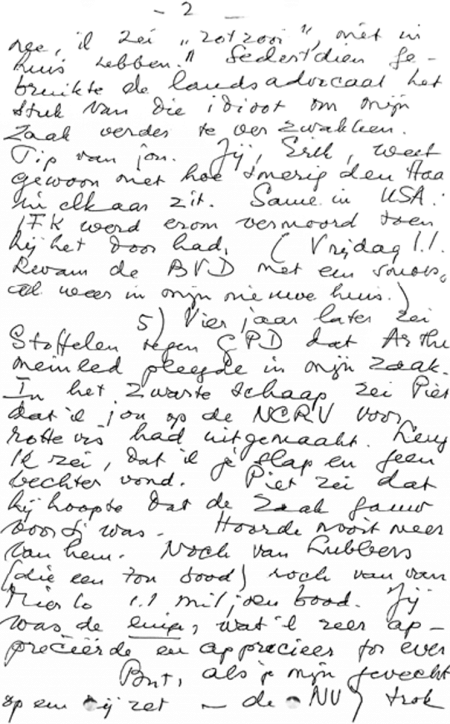 - 2 -
nee, ik zei "zotzooi", niet in
huis hebben." Sedertdien ge-
bruikte de landsadvocaat het
stuk van die idioot om mijn
zaak verder te verzwakken.
Tip van jou. Jij, Erik, weet
gewoon niet hoe smerig den Haag
in elkaar zit. Same in USA:
JFK werd erom vermoord toen
hij het door had. (Vrijdag 1.1.
kwam de BVD met een smoes,
al weer in mijn nieuwe huis.)
5) Vier jaar later zei
Stoffelen tegen CPD dat
meineed pleegde in mijn zaak.
In het Zwarte Schaap zei Piet
dat ik jou op de NCRV voor
rotte vis had uitgemaakt.
Ik zei, dat ik je slap en geen
vechter vond. Piet zei dat
hij hoopte dat de zaak gauw
voorbij was. Hoorde nooit meer
van hem. Noch van Lubbers
(die een ton bood) noch van van
Mierlo 1.1 miljoen bood. Jij
was de enige, wat ik zeer ap-
preciëerde en apprecieer for ever
But, als je mijn gevecht
op een zij zet - de NU) trok